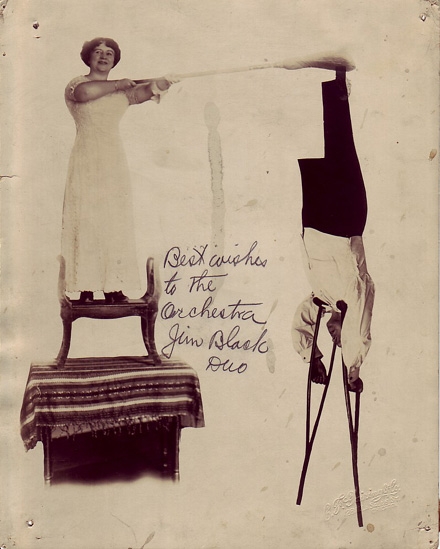 Best wishes
to the
Orchestra
Jim Black
Duo